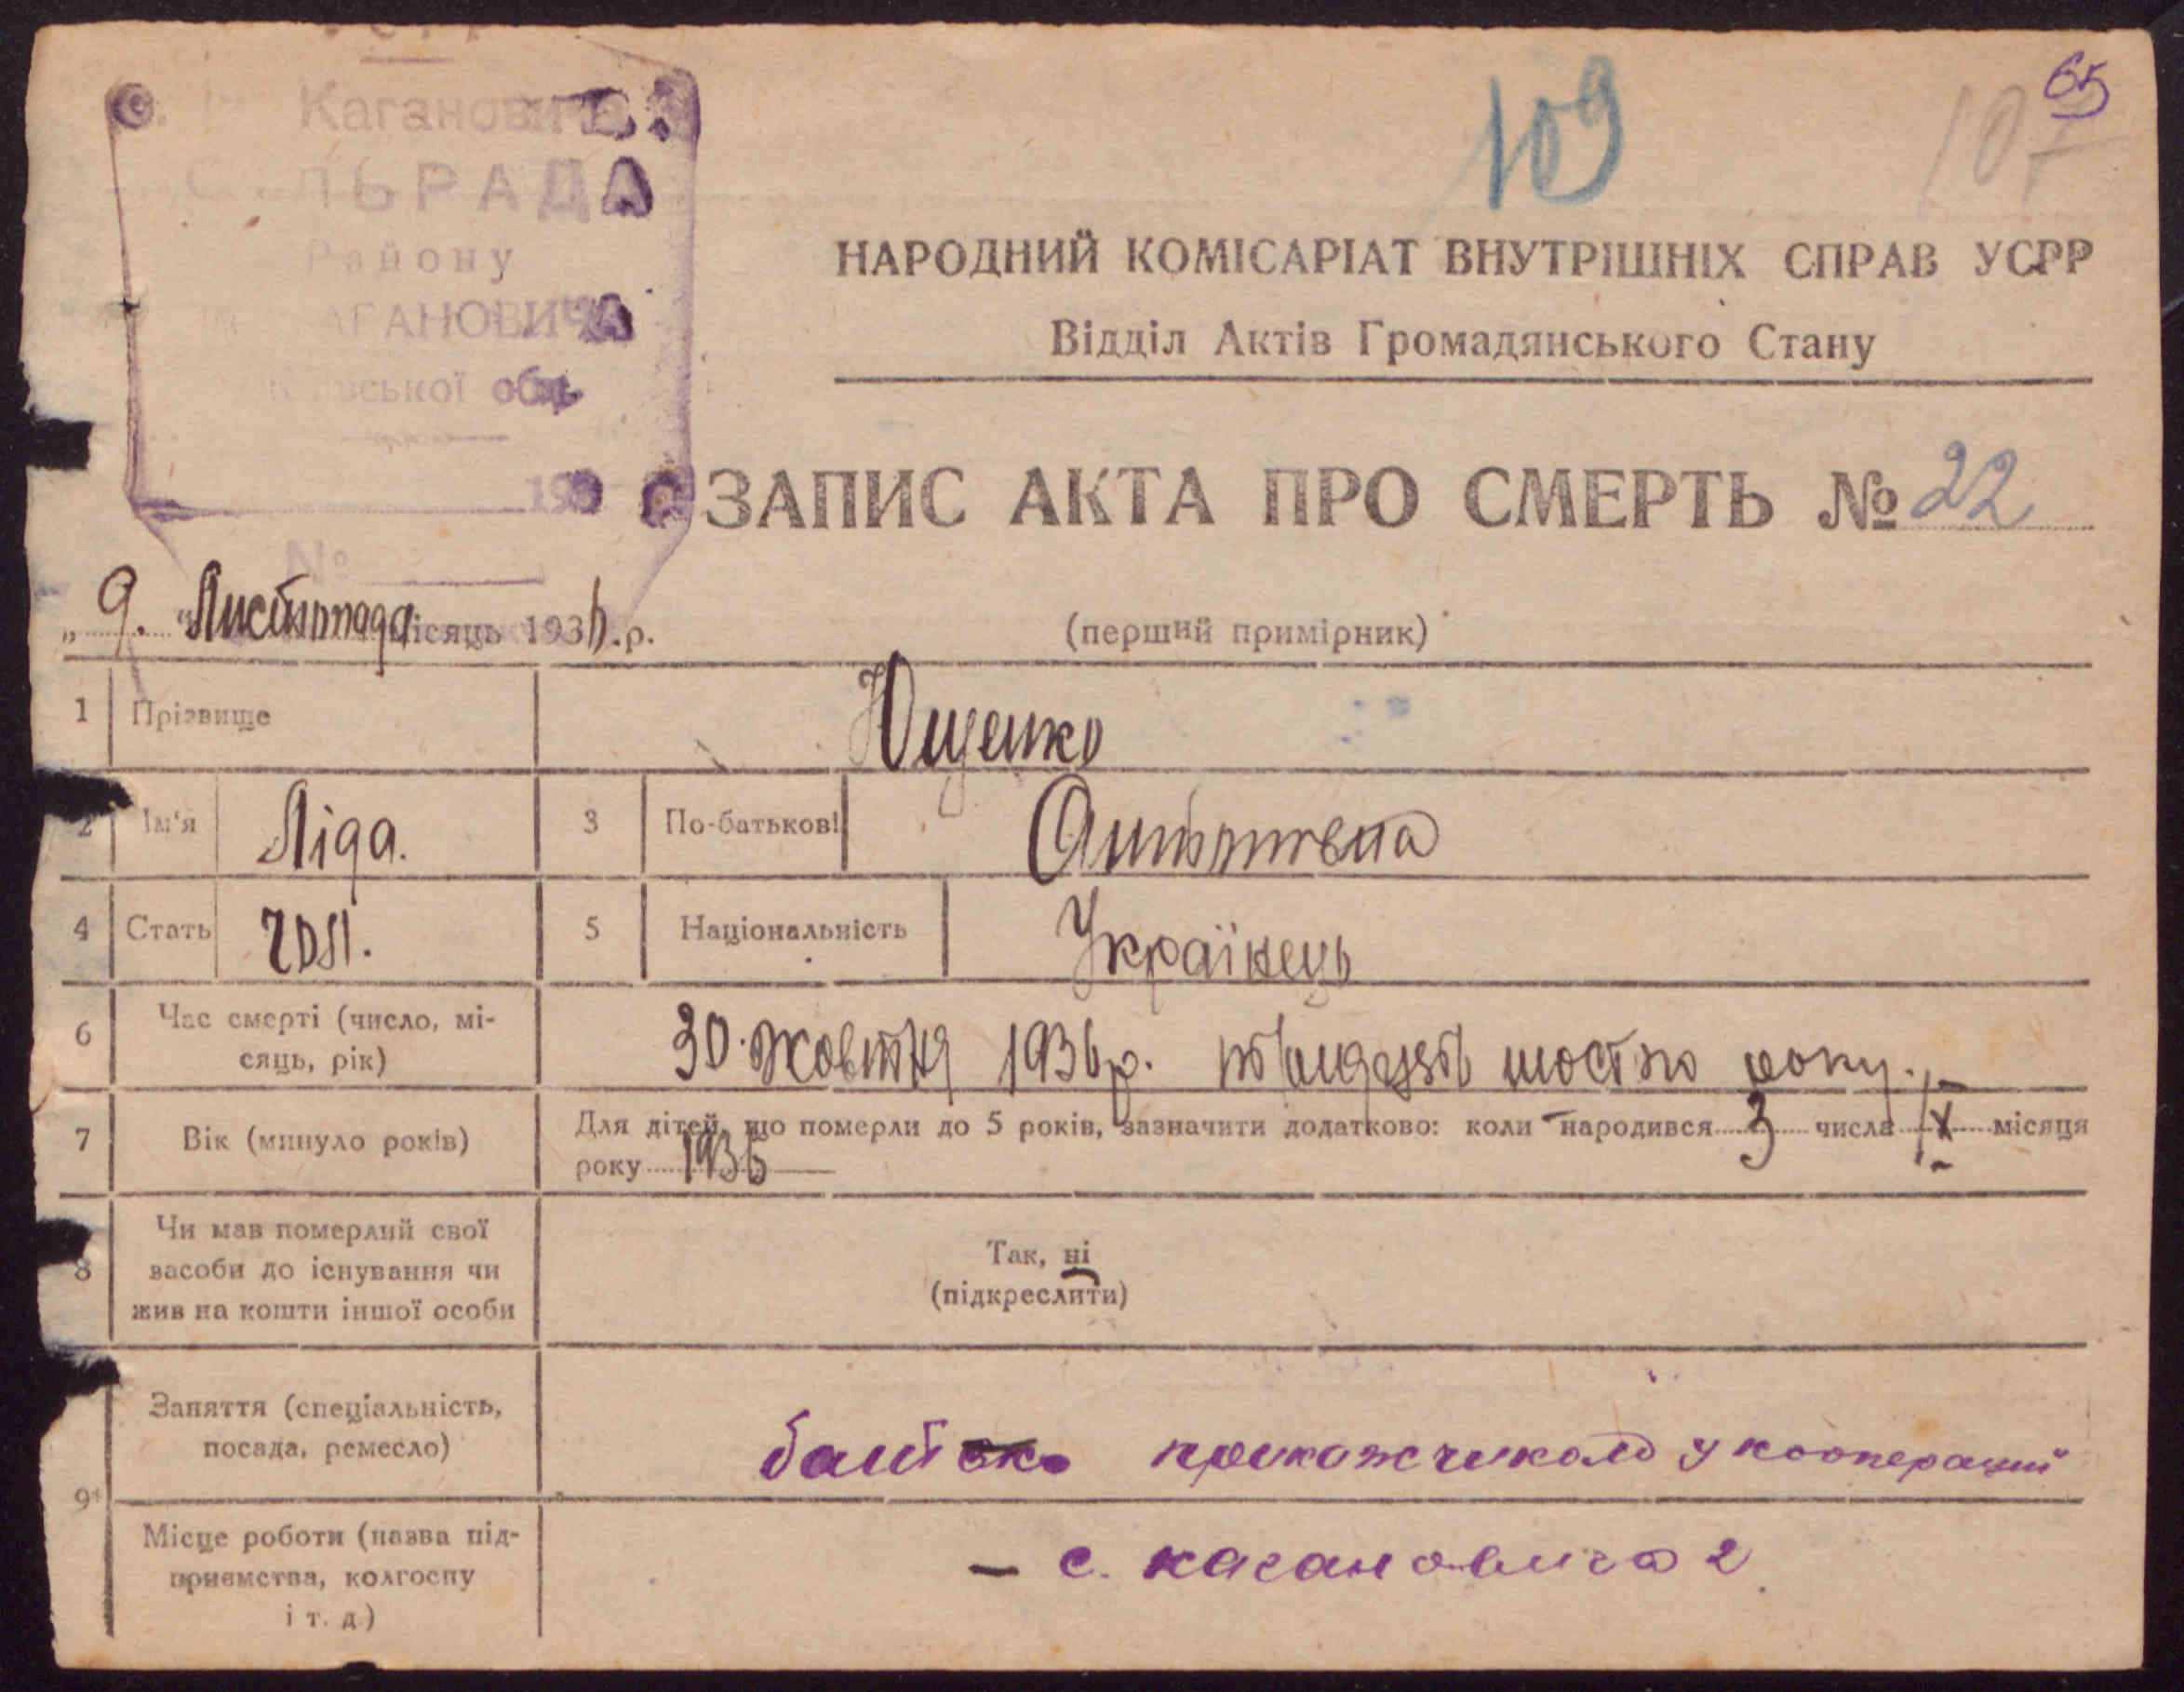 Каганович
ЛЬРАДА
Району
КАГАНОВИЧА
Київської обл.
193
№
109
107
65
НАРОДНИЙ КОМІСАРІАТ ВНУТРІШНІХ СПРАВ УСРР
Відділ Актів Громадянського Стану
ЗАПИС АКТА ПРО СМЕРТЬ № 22
„ 9. “ Листопада місяць 1936 .р.
(перший примірник)
1 Прізвище Ющенко
2 Ім'я Ліда. 3 По-батькові
4 Стать чол. 5 Національність Українець
6 Час смерті (число, мі-
сяць, рік)
30. Жовтня 1936 р. шостого року.
7 Вік (минуло років)
Для дітей, що померли до 5 років, зазначити додатково: коли народився 3 числа IX місяця
року 1936
8 Чи мав померлий свої
засоби до існування чи
жив на кошти іншої особи
Так, ні
(підкреслити)
9 Заняття (спеціальність,
посада, ремесло)
батько у кооперації
Місце роботи (назва під-
приємства, колгоспу
і т. д.)
– с. кагановича 2